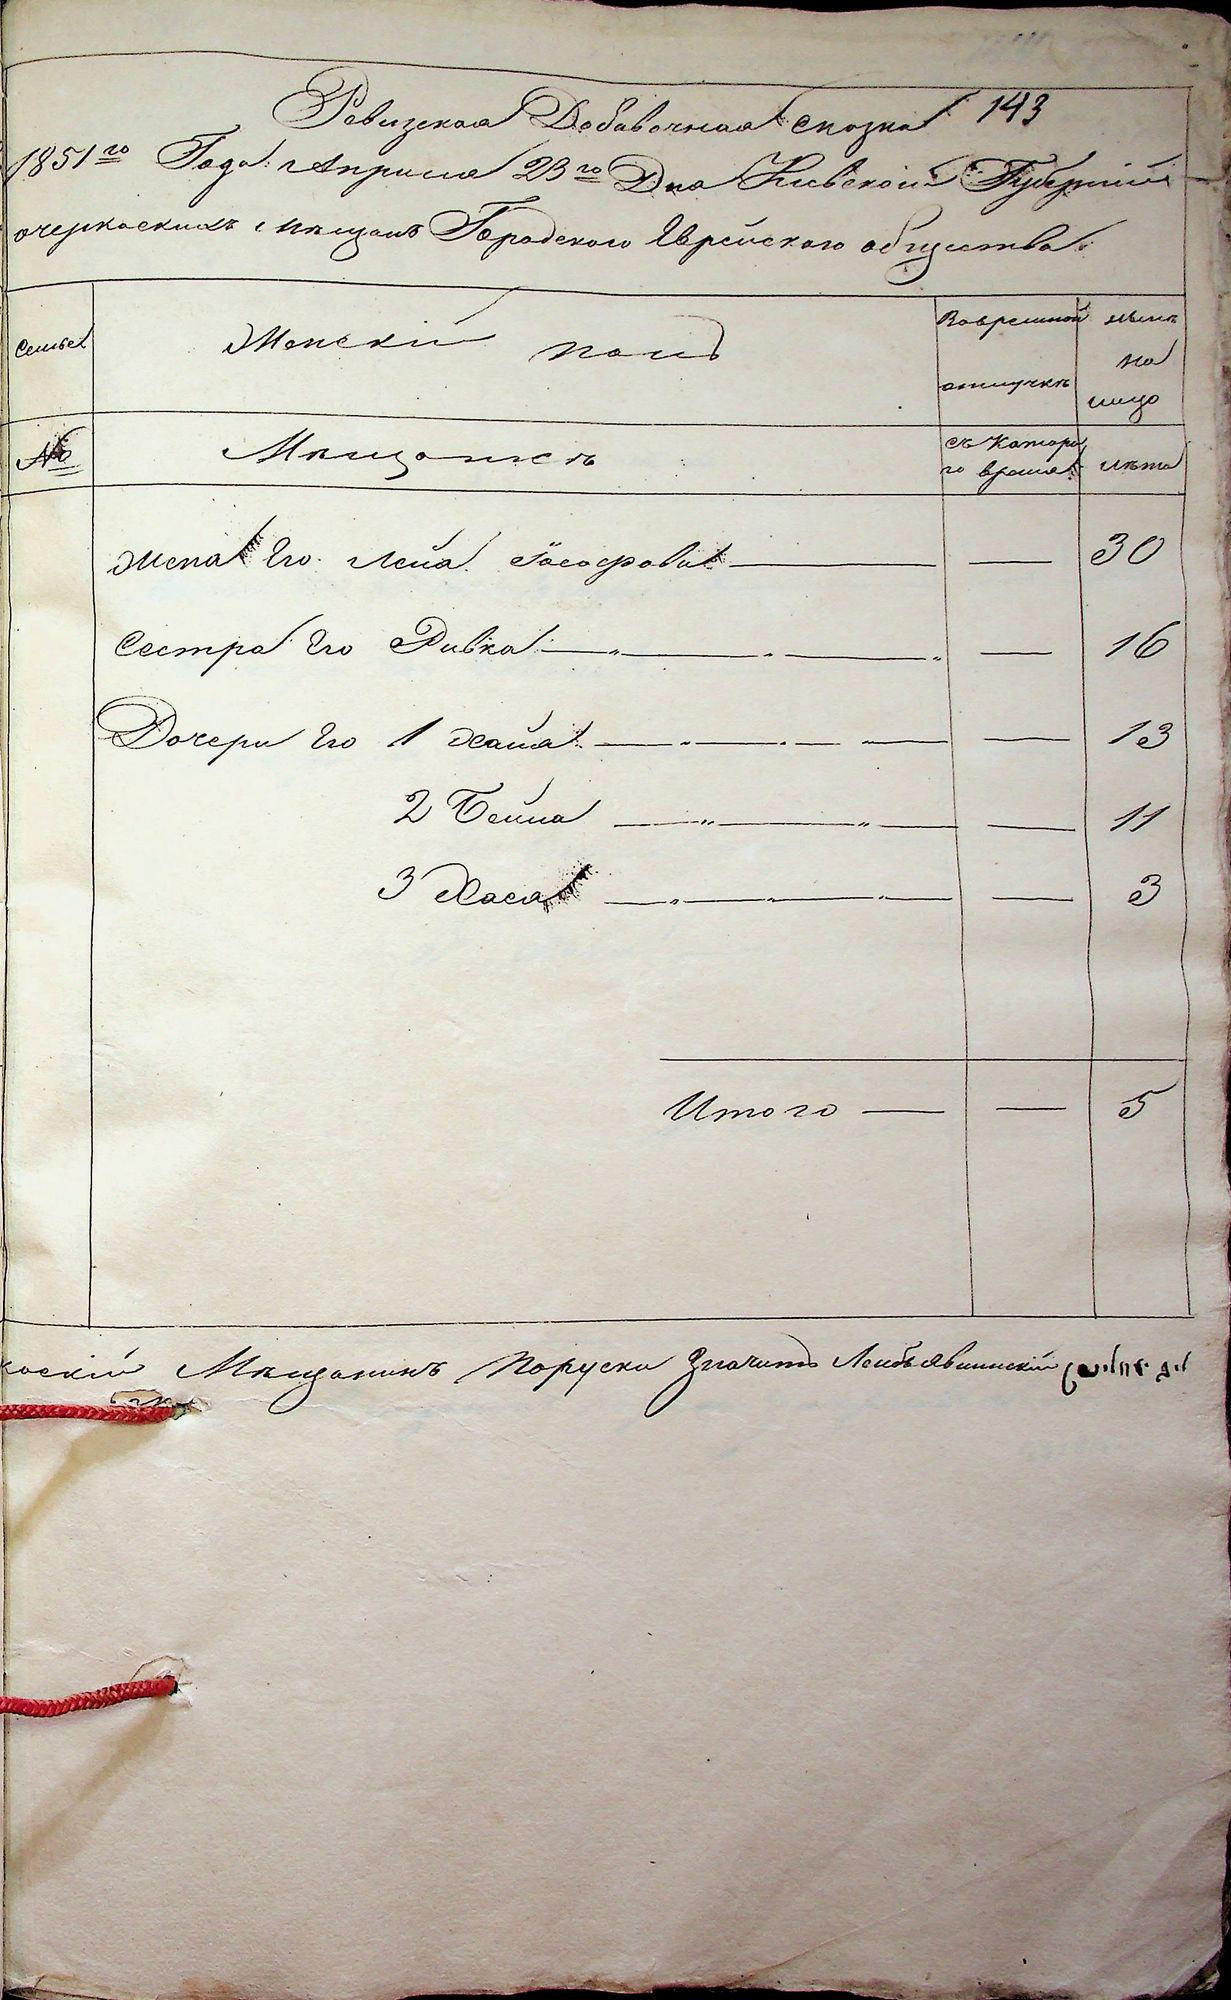 Ревизская Добавочная сказка 143
1851го Года Апреля 23го Дня Киевской Губернии
очеркаскихъ мещанъ Городского Еврейского общества
Семьи
Женский полъ
Вовременной отлучке
ныне на лицо
№
Мещанскъ
съ Которого время
лета
Жена Его Лейа Иосифова — — 30
Сестра Его Ривка — — 16
Дочери Его 1 Хайа — — 13
2 Бейла — — 11
3 Хася — — 3
Итого — — 5
каский Мещанинъ Поруски Значитъ Лейбъ